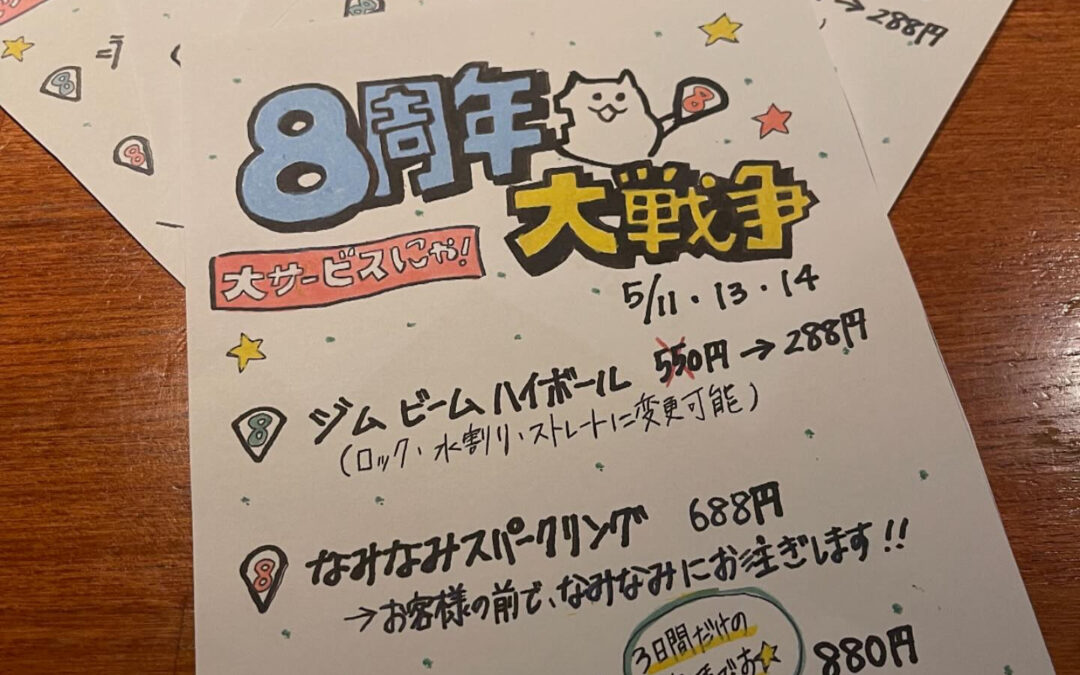 →288円
8
8
8
8周年
大戦争
大サービスにゃ!
5/11・13・14
8
ジムビームハイボール 550円→288円
(ロック、水割り、ストレートに変更可能)
8
なみなみスパークリング 688円
→お客様の前で、なみなみにお注ぎします!!
3日間だけの
880円